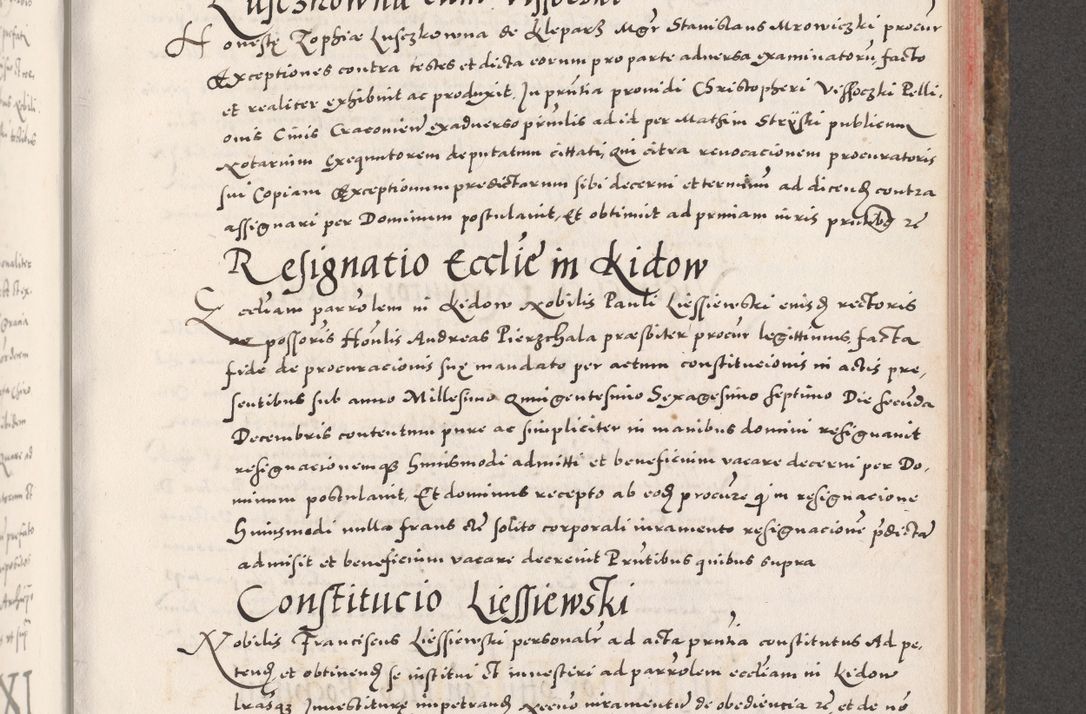 Lusezkowna cum Vissoczki
Honestę Zophiæ Lusezkowna de Kleparz Mgr Stanislaus Mrowiczki procur
Exceptiones contra testes et dicta eorum pro parte adversa examinatorū, facto
et realiter exhibuit ac produxit. In prñtia providi Christopheri Vissoczki Pelli,
onis Civis Cracovien̄ ex adverso prīnlis ad id per Mathiæ Strÿski publicum
Notarium Exequutorem deputatum cittati, qui citra revocacionem procuratoris
sui Copiam Exceptionum predictarum sibi decerni et terminum ad dicend contra
assignari per Dominum postulavit, Et obtinuit ad prmiam iuris prntibg rē
Resignatio Ecclie in Kidow
Eccliam parrolem in Kidow Nobilis Pauli Liessiewski eiusd rectoris
possoris Honlis Andreas Pierzchala præsbiter procur legittimus, facta
fide de procuracionis suę mandato per actum constitucionis in actis pre,
sentibus sub anno Millesimo Quingentesimo Sexagesimo septimo Die secunda
Decembris contentum pure ac simpliciter in manibus domini resignavit
resignacionemq huiusmodi admitti et beneficium vacare decerni per Do,
minum postulavit, Et dominus recepto ab eod procure q in resignacione
huiusmodi nulla fraus etc solito corporali iuramento resignacionē pdictā
admisit et beneficium vacare decrevit Prntibus quibus supra
Constitucio Liessiewski
Nobilis Franciscus Liessiewski personalr ad acta prntia constitutus Ad pe,
tend et obtinend se institui et investiri ad parrolem eccliam in Kidow
lrasq Investiturę impetrand Necnō iuramentū de obediencia rē et de nō